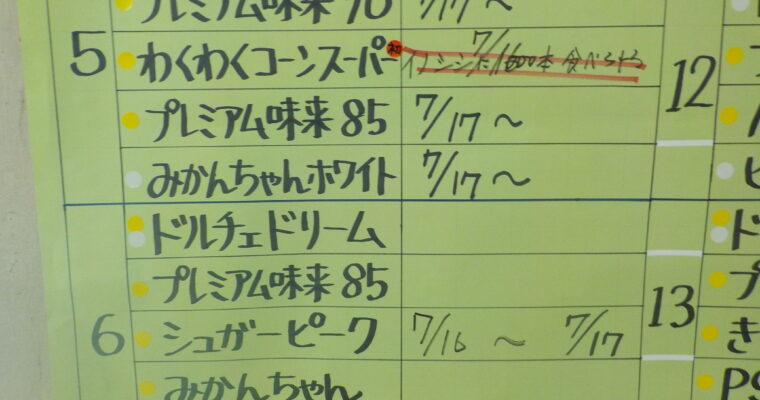 プレミアム味来90 7/17〜
5
わくわくコーンスーパー 初 7/16 イノシシに 600本 食べられる
プレミアム味来85 7/17〜
みかんちゃんホワイト 7/17〜
ドルチェドリーム
プレミアム味来85
6
シュガーピーク 7/16 〜 7/17
みかんちゃん
12
13
ド
プ
き
PS